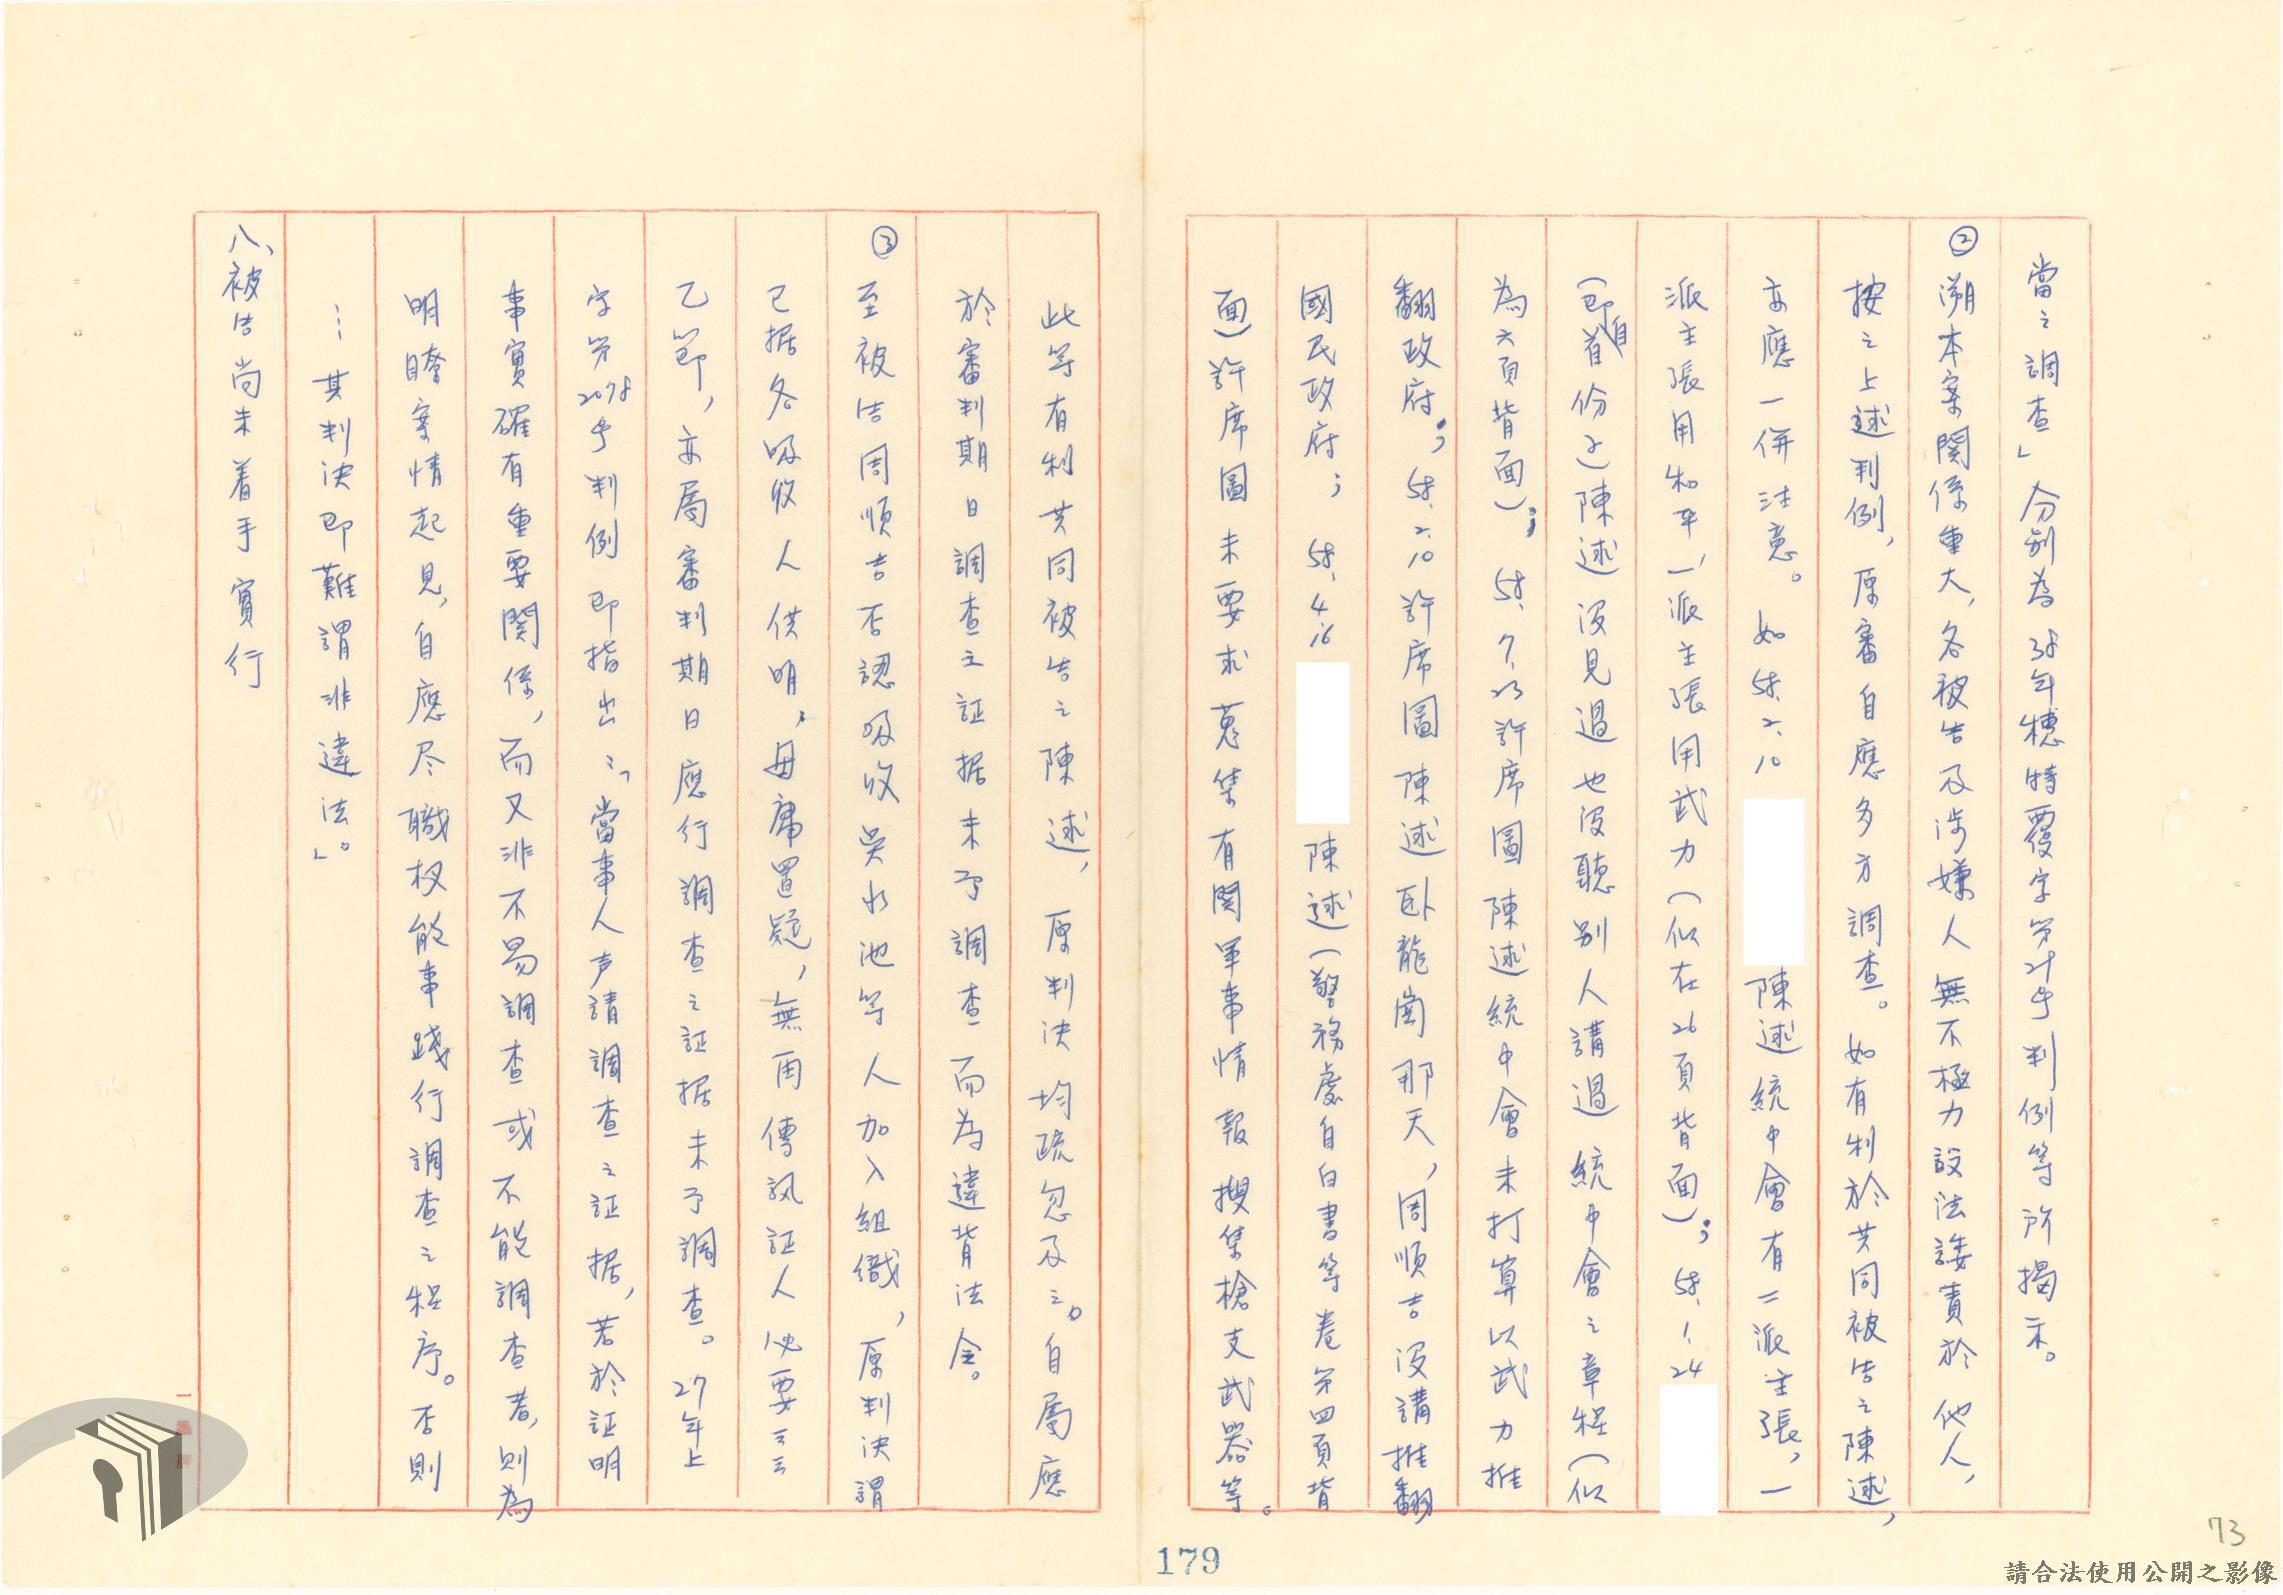 當之調查」分別為38年穗特覆字第29号判例等所揭示。
②溯本案関係重大，各被告及涉嫌人無不極力設法諉責於他人，
按之上述判例，原審自應多方調查。如有利於共同被告之陳述，
亦應一併注意。如58.2.10 陳述統中會有二派主張，一
派主張用和平，一派主張用武力（似在26頁背面）；58.1.24
（即自首份子）陳述没見過也没聽別人講過統中會之章程（似
為六頁背面）；58.7.23許席圖陳述統中會未打算以武力推
翻政府；58.2.10許席圖陳述臥龍崗那天，周順吉没講推翻
國民政府；58.4.16 陳述（警務處自白書等卷第四頁背
面）許席圖未要求蒐集有関軍事情報搜集槍支武器等。
此等有利共同被告之陳述，原判決均疏忽及之。自属應
於審判期日調查之証据未予調查而為違背法令。
③至被告周順吉否認吸收吳水池等人加入組織，原判決謂
已据各吸收人供明，毋庸置疑，無再傳訊証人必要云云
乙節，亦属審判期日應行調查之証据未予調查。27年上
字第2078号判例即指出：「當事人声請調查之証据，若於証明
事實確有重要関係，而又非不易調查或不能調查者，則為
明瞭案情起見，自應尽職权能事踐行調查之程序。否則
…其判決即難謂非違法。」
八、被告尚未着手實行
179
73
請合法使用公開之影像